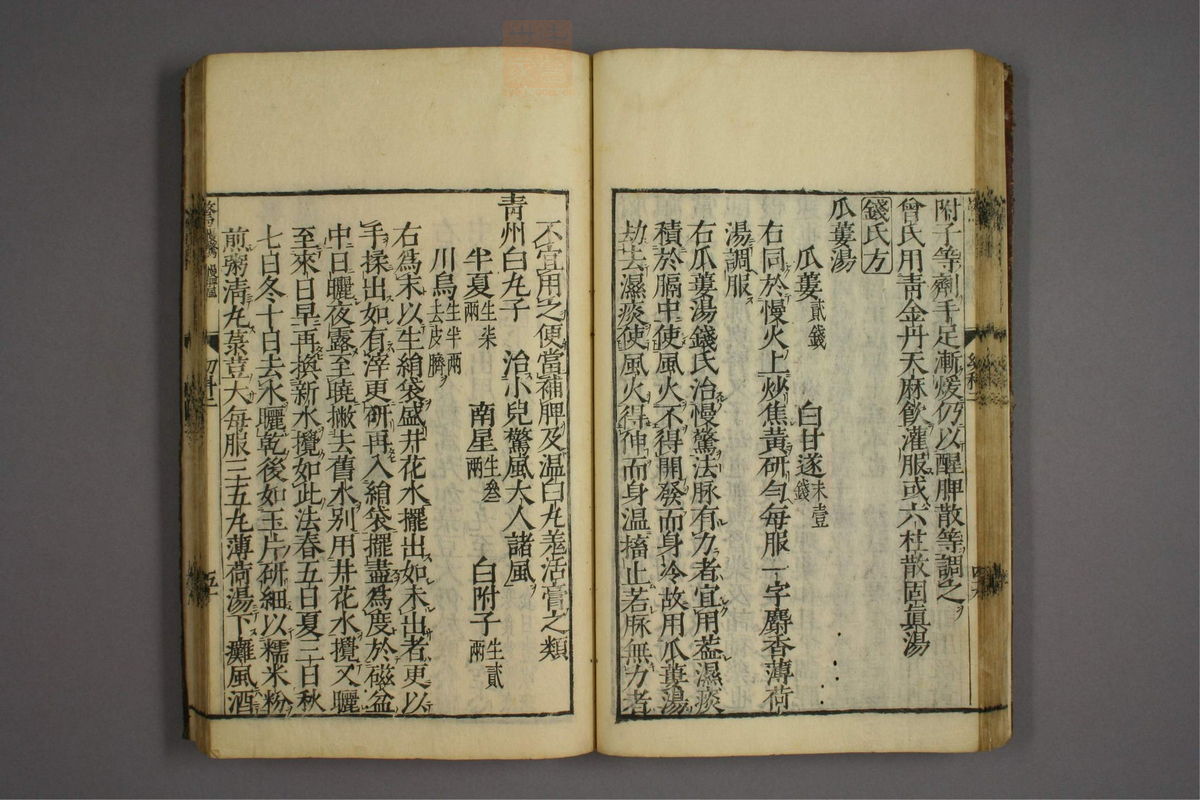 附子等劑手足漸煖仍以醒脾散等調之
曾氏用青金丹天麻飲灌服或六柱散固眞湯
錢氏方
瓜蔞湯
瓜蔞貳錢 白甘遂末壹錢
右同於慢火上炒焦黃研勻每服一字麝香薄荷
湯調服
右瓜蔞湯錢氏治慢驚法脉有力者宜用葢濕痰
積於膈中使風火不得開發而身冷故用瓜蔞湯
劫去濕痰使風火得伸而身温搐止若脉無力者
不宜用之便當補脾及温白丸羗活膏之類
青州白丸子 治小兒驚風大人諸風
半夏生柒兩 南星生叁兩 白附子生貳兩
川烏生半兩去皮臍
右爲末以生絹袋盛井花水擺出如未出者更以
手揉出如有滓更研再入絹袋擺盡爲度於磁盆
中日曬夜露至曉撇去舊水别用井花水攪又曬
至來日早再換新水攪如此法春五日夏三日秋
七日冬十日去水曬乾後如玉片研細以糯米粉
煎粥清丸菉荳大每服三五丸薄荷湯下癱風酒